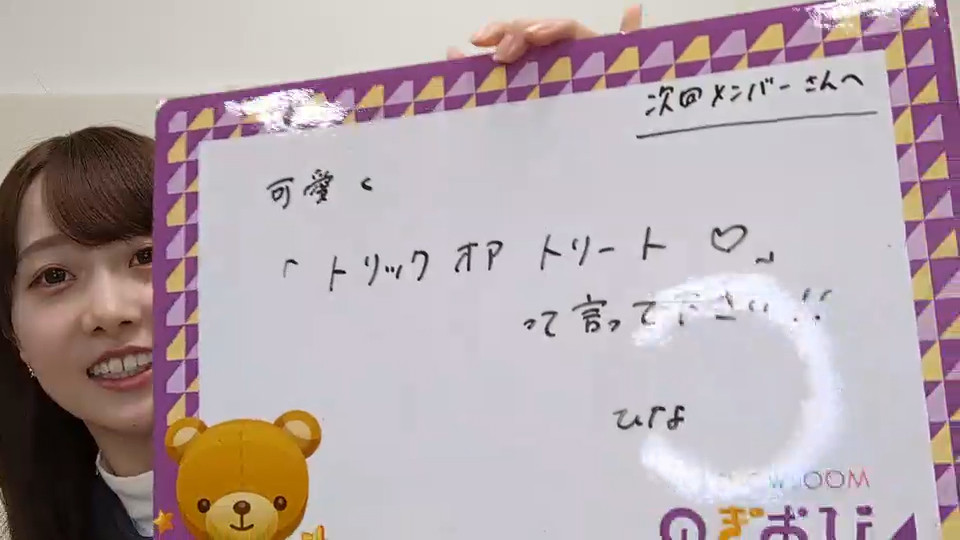 次回メンバーさんへ
可愛く
「トリックオアトリート♡」
って言って下さい!!
ひな
SHOWROOM
のぎおび